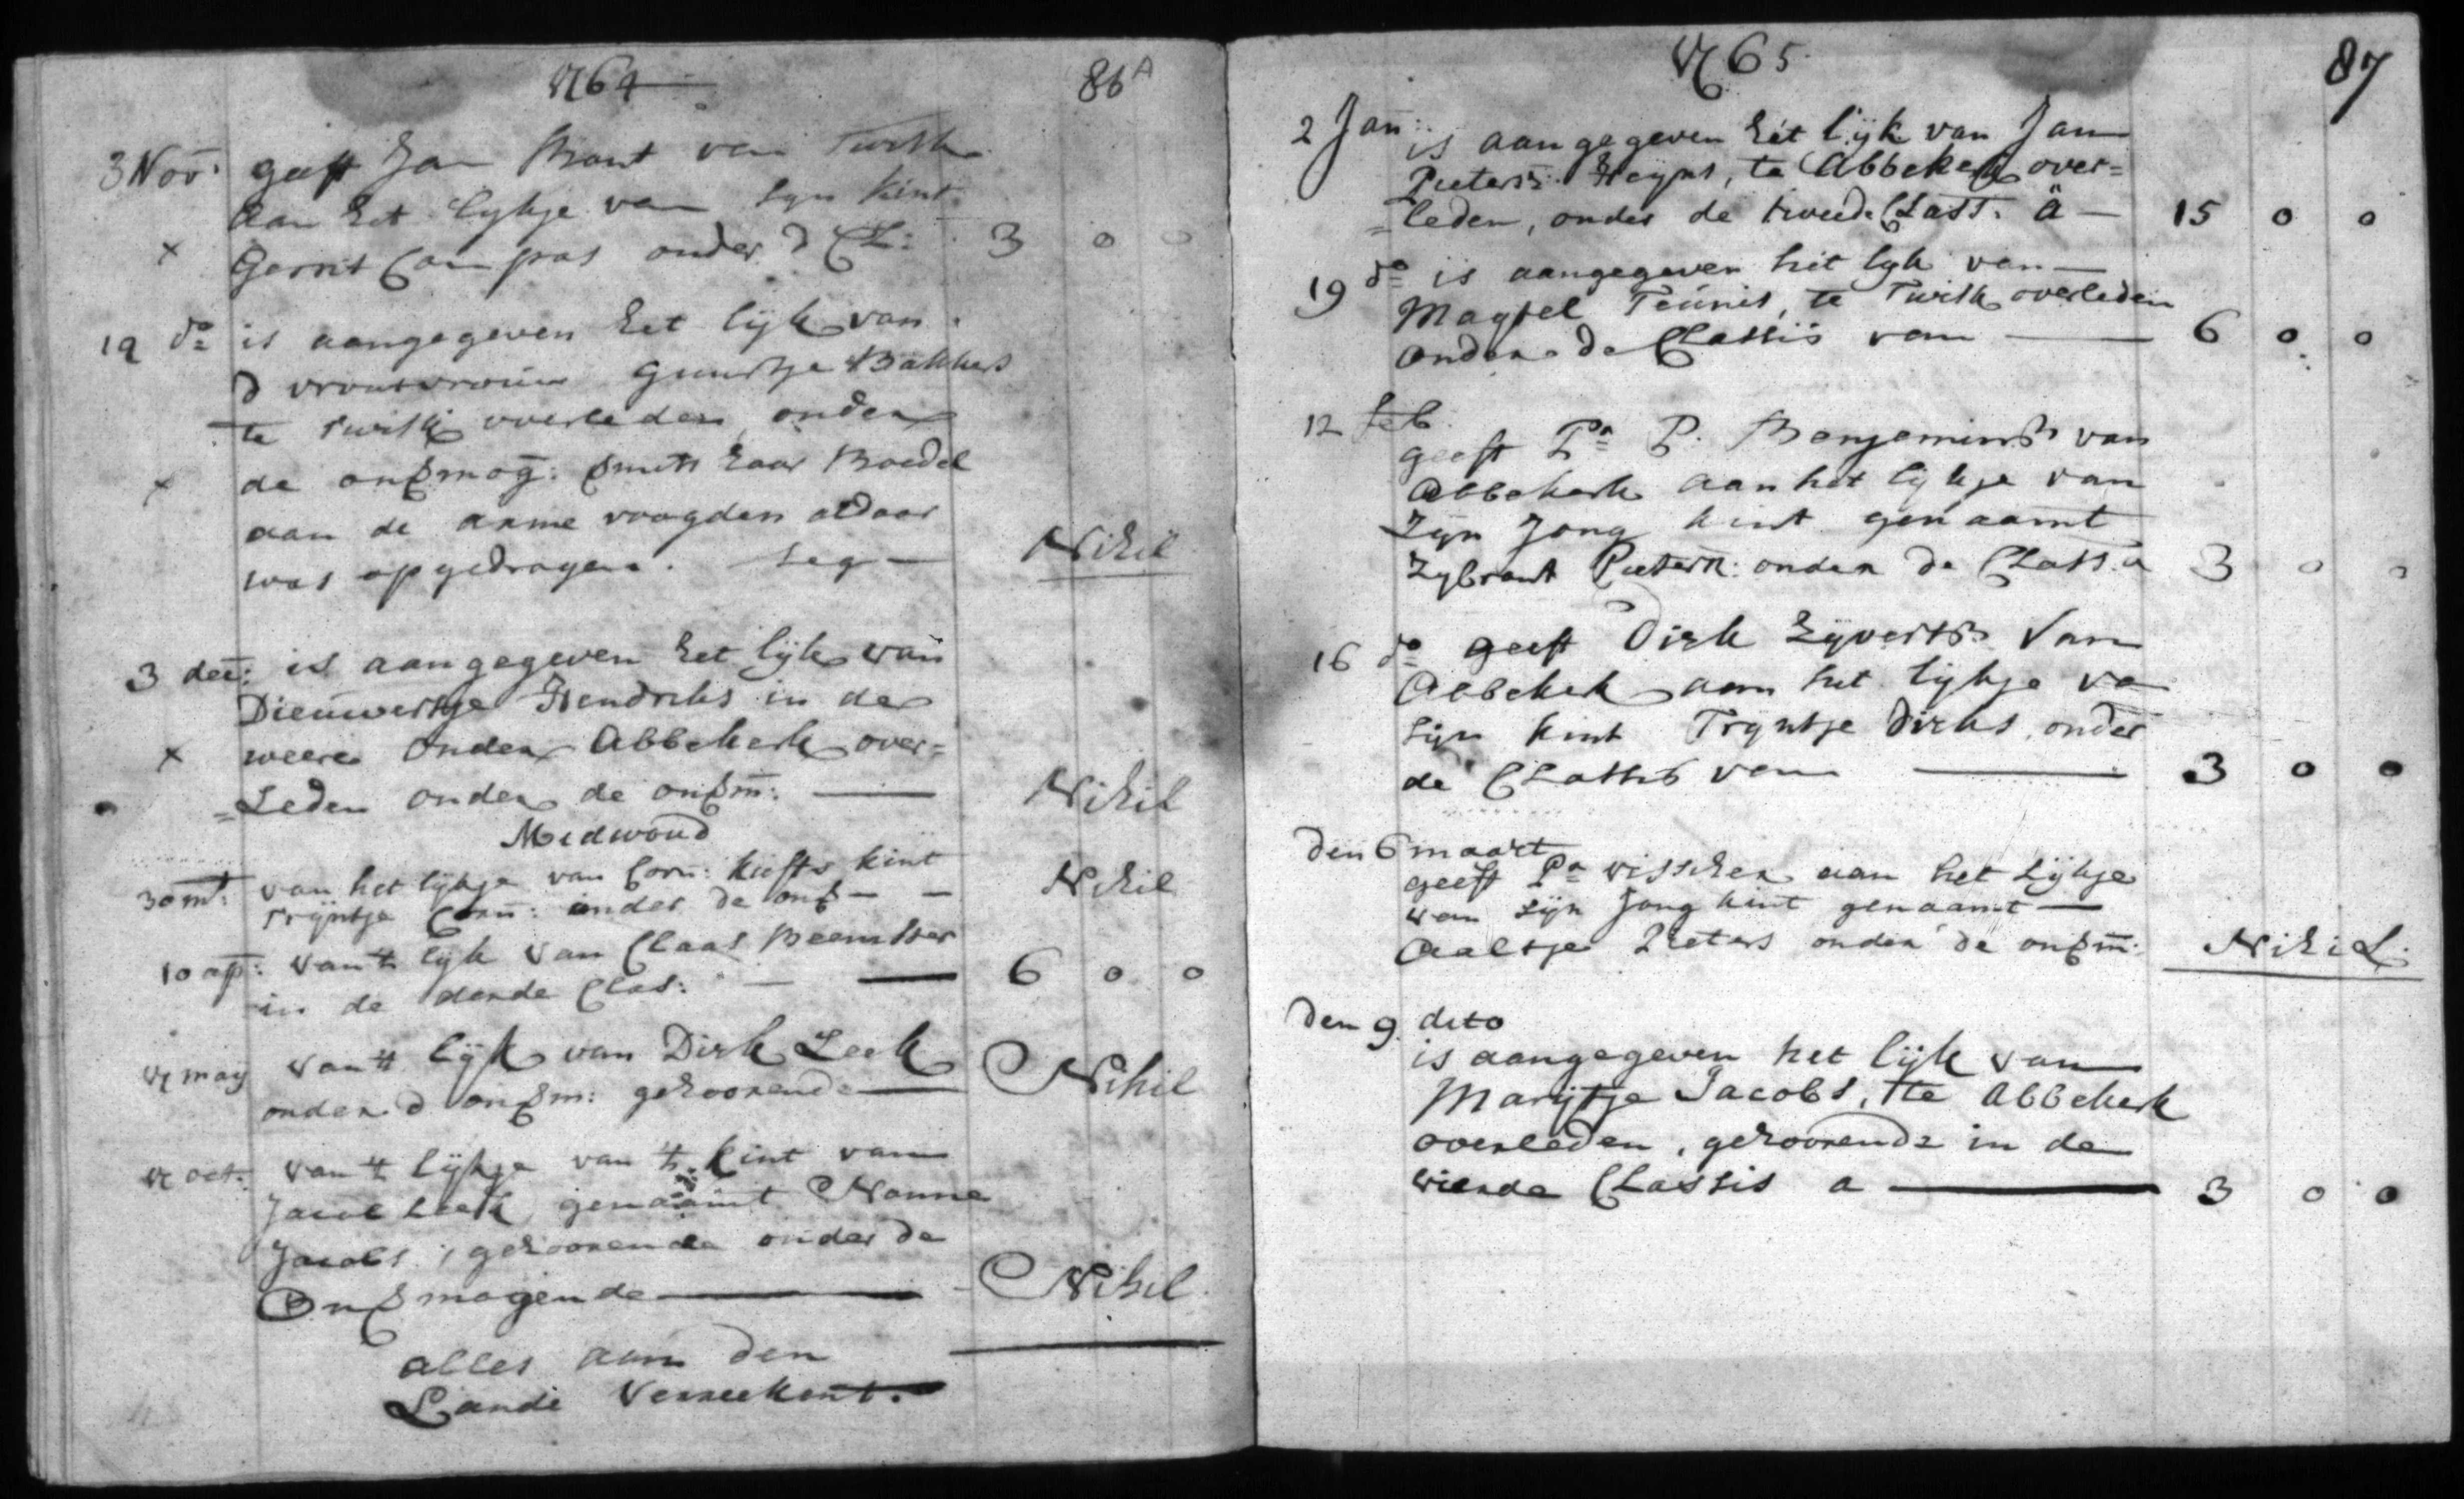 1764
86A
3 Nov: geeft Jan Brant van Twisk
aan het lijkje van syn kint
x Gerrit Compas onder d Cl: 3 0 0
19 do is aangegeven het lijk van
d vroutvrouw Guurtje Bakkers
te Twisk overleden onder
x de onvermog: smits haar Boedel
aan de arme voogden aldaar
was opgedragen. seg — Nihil
3 dec: is aangegeven het lijk van
Dieuwertje Hendriks in de
x weere onder Abbekerk over=
=Leden onder de onverm: — Nihil
Medwoud
30 mt: van het lijkje van Corn: kints kint
Trijntje Corn: onder de onv — — Nihil
10 ap: van 't lijk van Claas Beemster
in de derde Clas: — — 6 0 0
17 maij van 't lijk van Dirk Leek
onder d onverm: gehoorende — Nihil
17 oct: van 't lijkje van 't kint van
Jacob Leek, genaamt Nanne
Jacobs, gehoorende onder de
Onvermogende — Nihil
alles aan den
Lande Verreekent.
1765
87
2 Jan: is aangegeven het lijk van Jan
Pietersz: Heijns, te Abbekerk over=
=leden, onder de tweede Class: â — 15 0 0
19 do is aangegeven het lijk van —
Magtel Teunis, te Twisk overleden
onder de Classis van — 6 0 0
12 feb
geeft Pr P. Benjemints van
Abbekerk aan het lijkje van
Zijn Jong kint genaamt
Zybrant Pietersz: onder de Class. a 3 0 0
16 do geeft Dirk Zijverts van
Abbekek aan het lijkje va
sijn kint Trijntje Dirks, onder
de Classis van — 3 0 0
Den 6 maart
geeft Pr visscher aan het Lijkje
van zijn Jong kint genaamt —
Aaltje Pieters onder de onverm: Nihil.
Den 9. dito
is aangegeven het lijk van
Marijtje Jacobs, te Abbekerk
overleden, gehoorende in de
vierde Classis a — 3 0 0